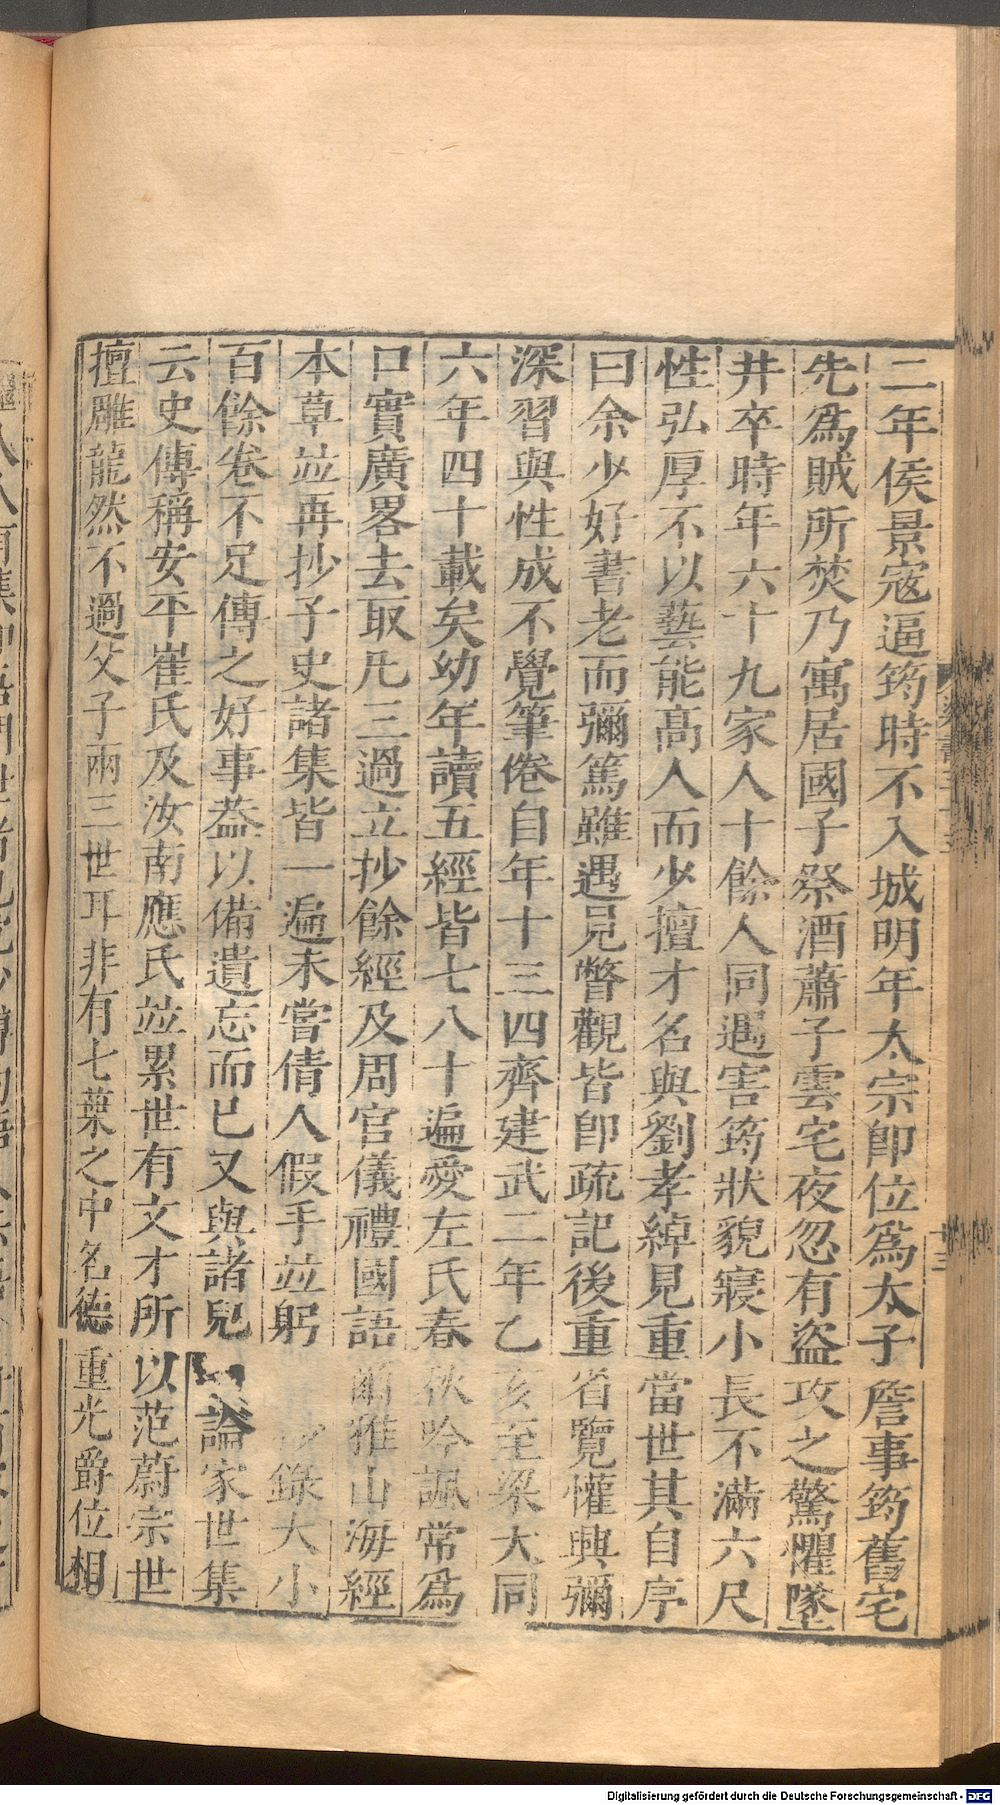 二年侯景寇逼筠時不入城明年太宗卽位爲太子詹事筠舊宅
先爲賊所焚乃寓居國子祭酒蕭子雲宅夜忽有盜攻之驚懼墜
井卒時年六十九家人十餘人同遇害筠狀貌寢小長不滿六尺
性弘厚不以藝能高人而少擅才名與劉孝綽見重當世其自序
曰余少好書老而彌篤雖遇見瞥觀皆卽疏記後重省覽懽興彌
深習與性成不覺筆倦自年十三四齊建武二年乙亥至梁大同
六年四十載矣幼年讀五經皆七八十遍愛左氏春秋吟諷常爲
口實廣畧去取凡三過五抄餘經及周官儀禮國語爾雅山海經
本草並再抄子史諸集皆一遍未嘗倩人假手並躬抄錄大小
百餘卷不足傳之好事葢以備遺忘而已又與諸兒論家世集
云史傳稱安平崔氏及汝南應氏並累世有文才所以范蔚宗世
擅雕龍然不過父子兩三世耳非有七葉之中名德重光爵位相
Digitalisierung gefördert durch die Deutsche Forschungsgemeinschaft - DFG